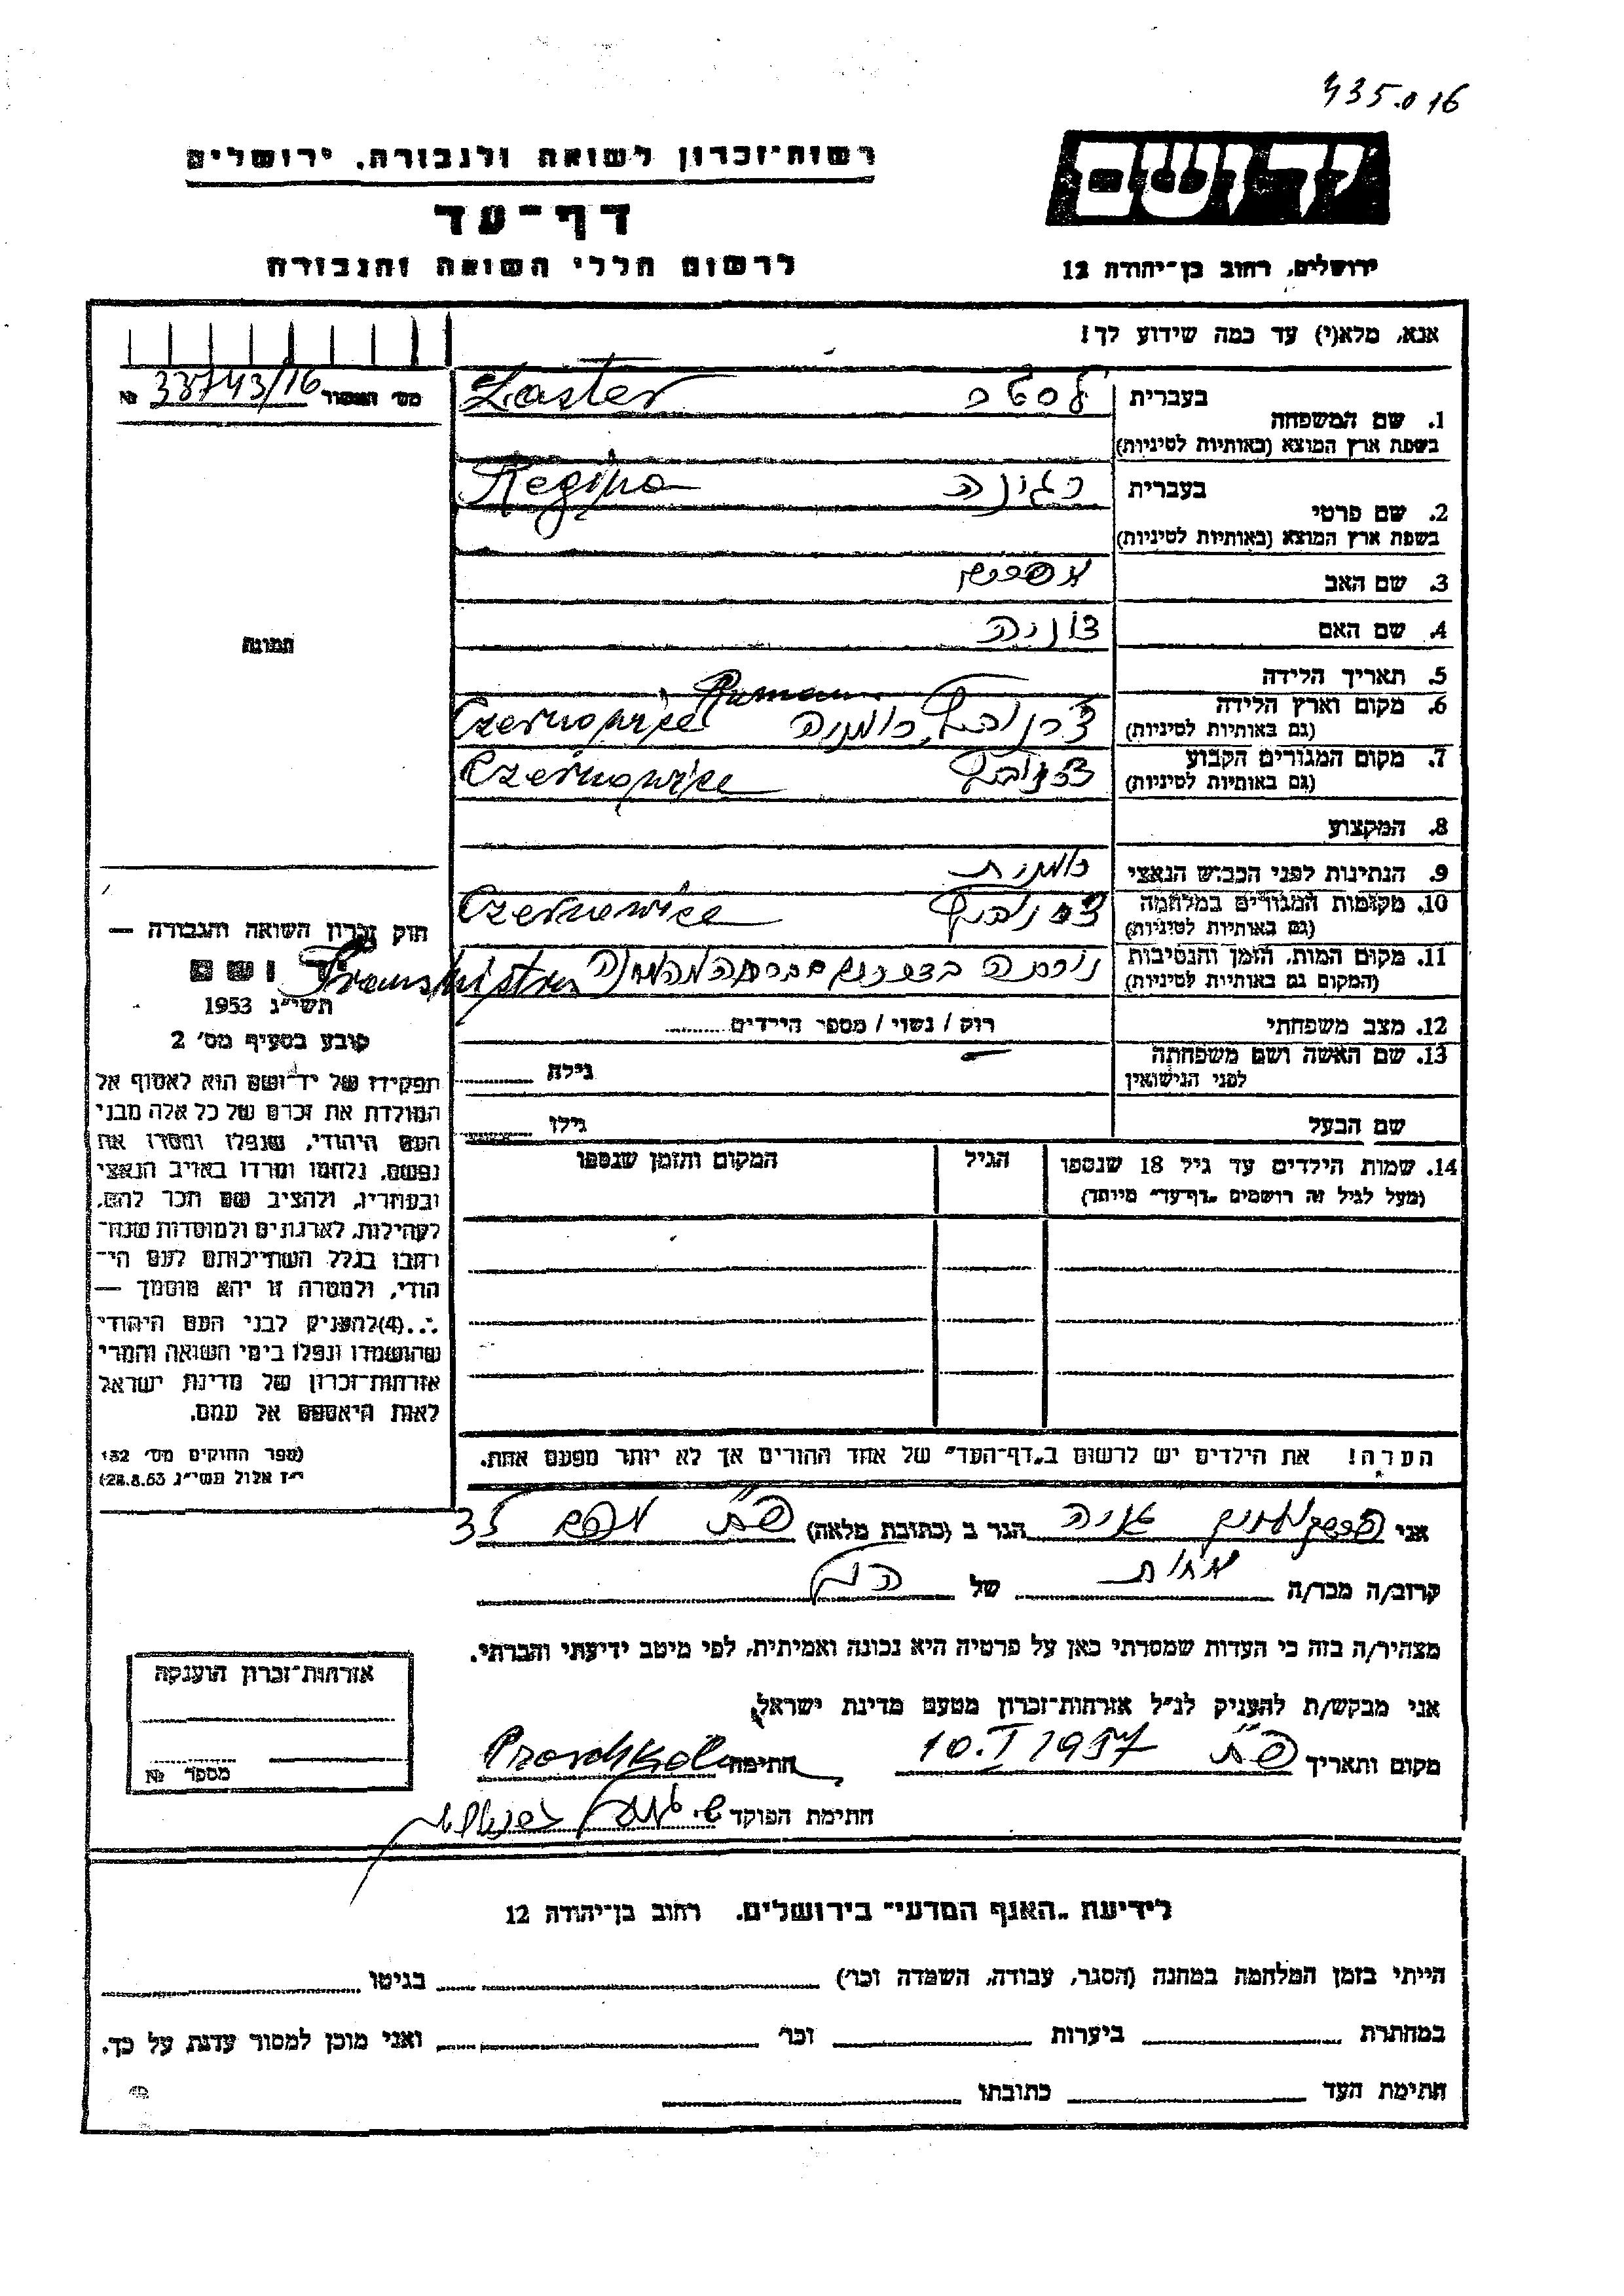 435.016
רשות־זכרון לשואה ולגבורה, ירושלים
יד ושם
דף־עד
לרשום חללי השואה והגבורה
ירושלים, רחוב בן־יהודה 12
אנא, מלא(י) עד כמה שידוע לך!
1. שם המשפחה בעברית לסטר Laster
בשפת ארץ המוצא (באותיות לטיניות)
מס' המסור 33743/16 №
2. שם פרטי בעברית רגינה Regina
בשפת ארץ המוצא (באותיות לטיניות)
3. שם האב
4. שם האם
תמונה
5. תאריך הלידה
6. מקום וארץ הלידה רומניה Czernowice
(גם באותיות לטיניות)
7. מקום המגורים הקבוע Czernowice
(גם באותיות לטיניות)
8. המקצוע
9. הנתינות לפני הכבוש הנאצי רומנית
10. מקומות המגורים במלחמה Czernowice
(גם באותיות לטיניות)
11. מקום המות, הזמן והנסיבות
(המקום גם באותיות לטיניות)
12. מצב משפחתי רוק / נשוי / מספר הילדים
13. שם האשה ושם משפחתה גילה
לפני הנישואין
שם הבעל גילו
14. שמות הילדים עד גיל 18 שנספו הגיל המקום והזמן שנספו
(מעל לגיל זה רושמים „דף־עד" מיוחד)
הערה! את הילדים יש לרשום ב„דף־העד" של אחד ההורים אך לא יותר מפעם אחת.
חוק זכרון השואה והגבורה —
יד ושם
תשי"ג 1953
קובע בסעיף מס' 2
תפקידו של יד־ושם הוא לאסוף אל
המולדת את זכרם של כל אלה מבני
העם היהודי, שנפלו ומסרו את
נפשם, נלחמו ומרדו באויב הנאצי
ובעוזריו, ולהציב שם וזכר להם,
לקהילות, לארגונים ולמוסדות שנח־
רבו בגלל השתייכותם לעם הי־
הודי, ולמטרה זו יהא מוסמך —
...(4) להעניק לבני העם היהודי
שהושמדו ונפלו בימי השואה והמרי
אזרחות־זכרון של מדינת ישראל
לאות היאספם אל עמם.
(ספר החוקים מס' 132
י"ז אלול תשי"ג 28.8.53)
אני הגר ב (כתובת מלאה) 35
קרוב/ה מכר/ה אחות של
מצהיר/ה בזה כי העדות שמסרתי כאן על פרטיה היא נכונה ואמיתית, לפי מיטב ידיעתי והכרתי.
אני מבקש/ת להעניק לנ"ל אזרחות־זכרון מטעם מדינת ישראל.
מקום ותאריך 10.I 1957 חתימה
חתימת הפוקד
אזרחות־זכרון הוענקה
מספר №
לידיעת „האגף המדעי" בירושלים, רחוב בן־יהודה 12
הייתי בזמן המלחמה במחנה (הסגר, עבודה, השמדה וכר') בגיטו
במחתרת ביערות וכר' ואני מוכן למסור עדות על כך.
חתימת העד כתובתו